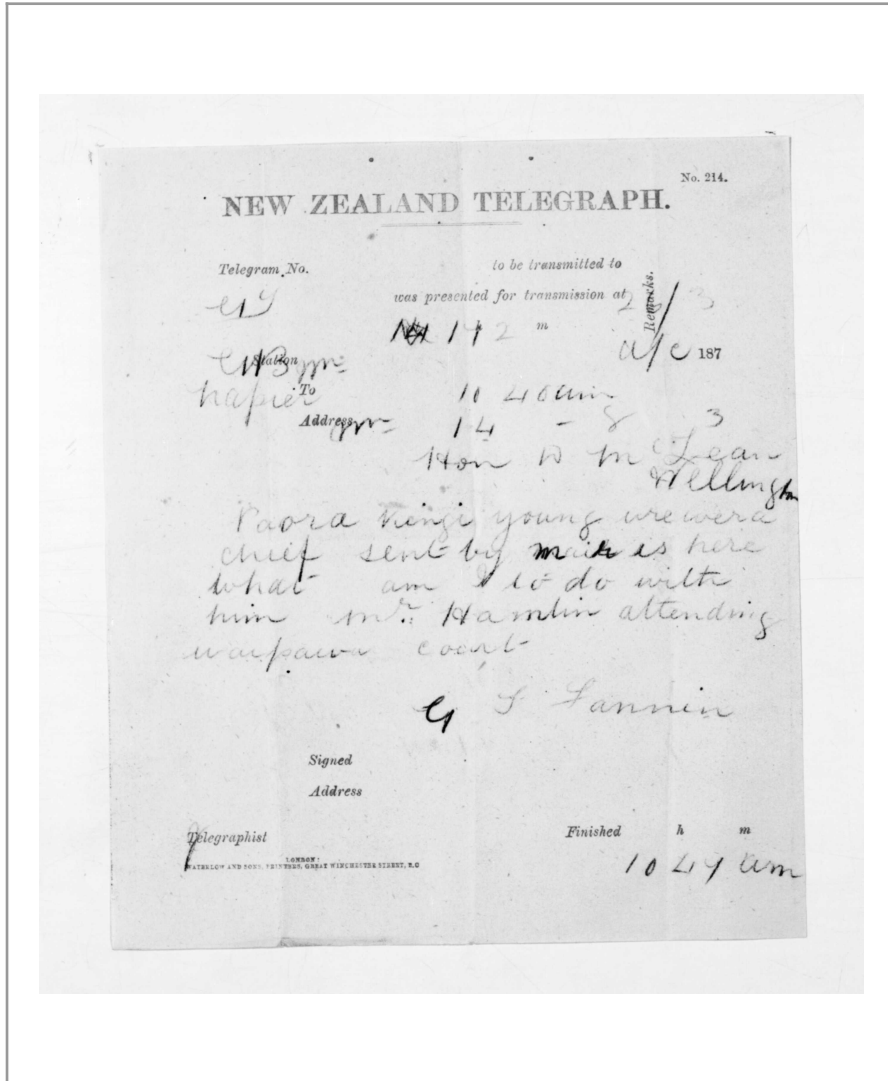 No. 214.
NEW ZEALAND TELEGRAPH.
Telegram No. to be transmitted to
was presented for transmission at
Remarks.
h m
Station
a/c 187
Napier To 10 40am
Address 14 - 3
Hon D McLean
Wellington
Paora Kingi young urewera
chief sent by mair is here
what am I to do with
him Mr. Hamlin attending
waipawa court
G S Fannin
Signed
Address
Telegraphist Finished h m
LONDON:
WATERLOW AND SONS, PRINTERS, GREAT WINCHESTER STREET, E.C
10 49 am